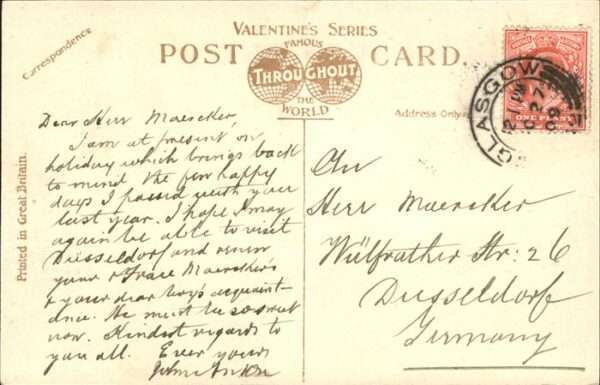 VALENTINE'S SERIES
FAMOUS
THROUGHOUT
THE
WORLD
POST CARD.
Correspondence
Address Only
Printed in Great Britain.
GLASGOW
12 1 PM
27
09
ONE PENNY
Dear Herr Maercker,
I am at present on
holiday which brings back
to mind the few happy
days I passed with you
last year. I hope I may
again be able to visit
Düsseldorf and renew
your & Frau Maercker's
& your dear boy's acquaint-
ance. He must be so sweet
now. Kindest regards to
you all. Ever yours
An
Herr Maercker
Wülfrather Str: 26
Düsseldorf
Germany